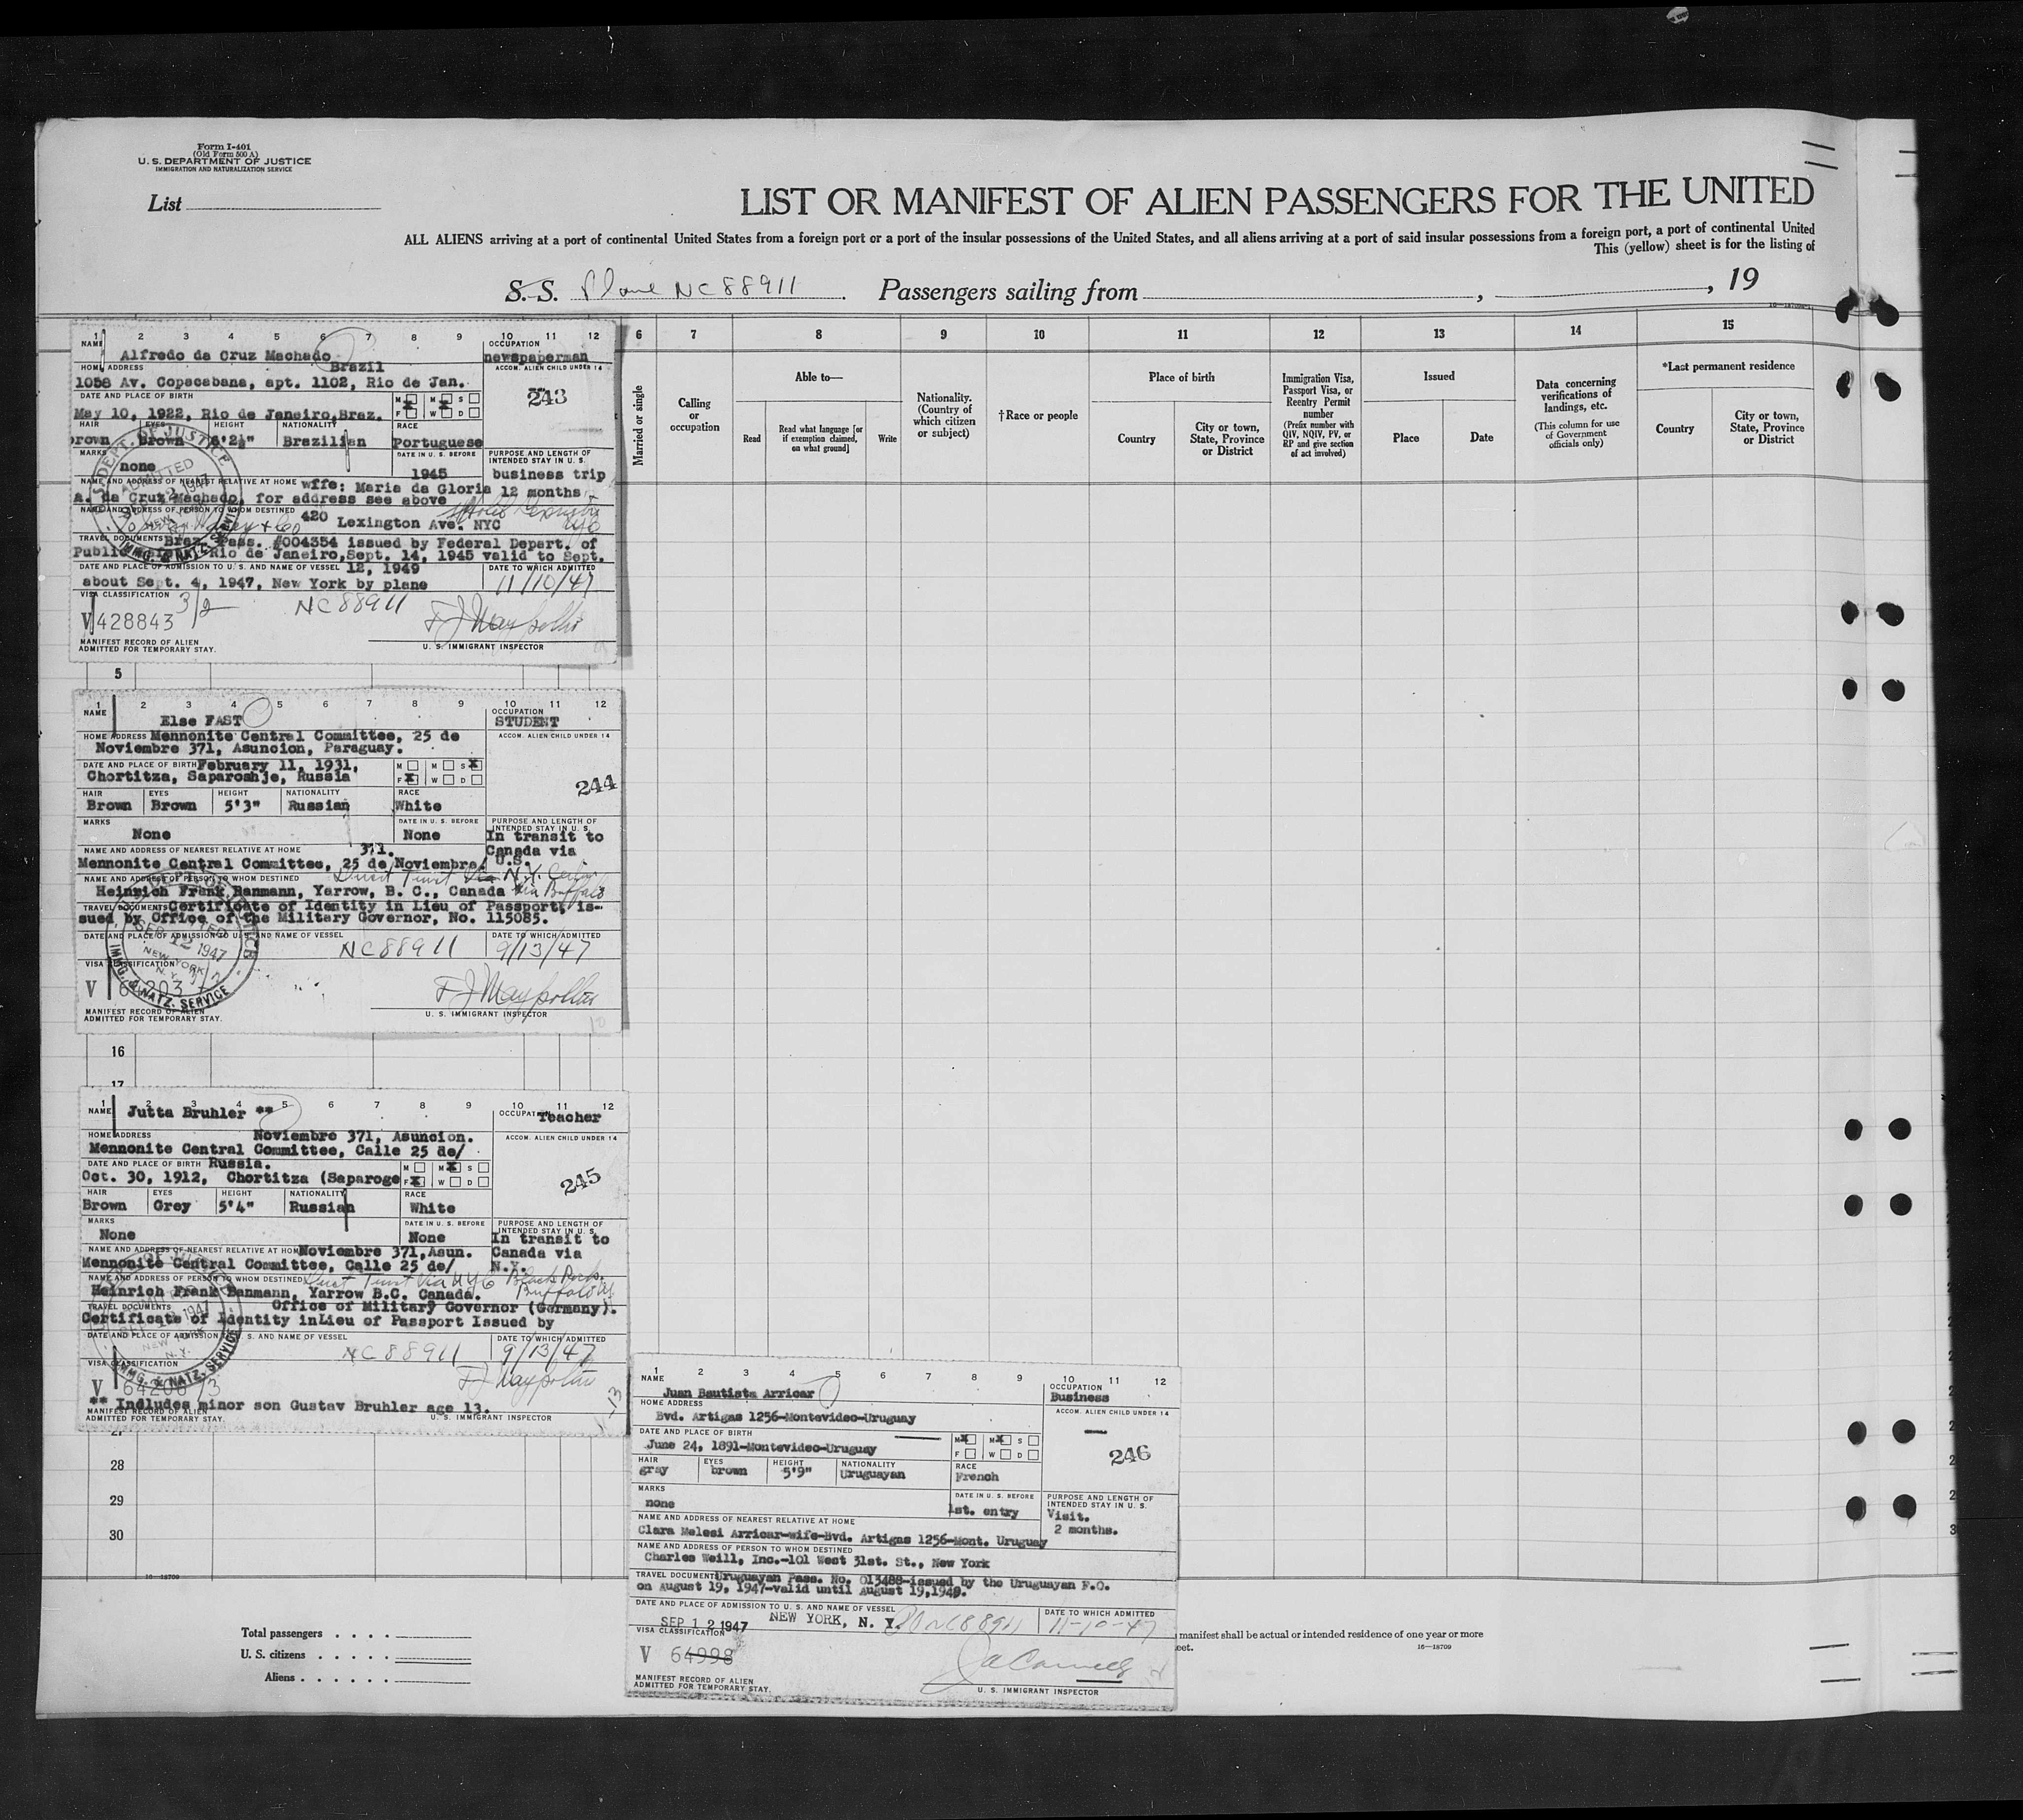 Form I-401
(Old Form 500 A)
U. S. DEPARTMENT OF JUSTICE
IMMIGRATION AND NATURALIZATION SERVICE
List
LIST OR MANIFEST OF ALIEN PASSENGERS FOR THE UNITED
ALL ALIENS arriving at a port of continental United States from a foreign port or a port of the insular possessions of the United States, and all aliens arriving at a port of said insular possessions from a foreign port, a port of continental United
This (yellow) sheet is for the listing of
S. S. Plane NC88911 Passengers sailing from , , 19
6 7 8 9 10 11 12 13 14 15
Married or single
Calling or occupation
Able to—
Read
Read what language [or if exemption claimed, on what ground]
Write
Nationality. (Country of which citizen or subject)
†Race or people
Place of birth
Country
City or town, State, Province or District
Immigration Visa, Passport Visa, or Reentry Permit number
(Prefix number with QIV, NQIV, PV, or RP and give section of act involved)
Issued
Place
Date
Data concerning verifications of landings, etc.
(This column for use of Government officials only)
*Last permanent residence
Country
City or town, State, Province or District
1 2 3 4 5 6 7 8 9 10 11 12
NAME
OCCUPATION
Alfredo da Cruz Machado
newspaperman
Brazil
HOME ADDRESS
ACCOM. ALIEN CHILD UNDER 14
1058 Av. Copacabana, apt. 1102, Rio de Jan.
243
DATE AND PLACE OF BIRTH
M X M X S
F W D
May 10, 1922, Rio de Janeiro,Braz.
HAIR EYES HEIGHT NATIONALITY RACE
rown Brown 6'2½" Brazilian Portuguese
MARKS
none
DATE IN U. S. BEFORE
1945
PURPOSE AND LENGTH OF INTENDED STAY IN U. S.
business trip
12 months
NAME AND ADDRESS OF NEAREST RELATIVE AT HOME
wffe: Maria da Gloria
A. da Cruz Machado, for address see above
NAME AND ADDRESS OF PERSON TO WHOM DESTINED
420 Lexington Ave. NYC
TRAVEL DOCUMENTS
Braz. Pass. #004354 issued by Federal Depart. of
Public Rio de Janeiro,Sept. 14, 1945 valid to Sept.
12, 1949
DATE AND PLACE OF ADMISSION TO U. S. AND NAME OF VESSEL
DATE TO WHICH ADMITTED
about Sept. 4, 1947, New York by plane
11/10/47
VISA CLASSIFICATION
3/2
NC88911
V 428843
MANIFEST RECORD OF ALIEN
ADMITTED FOR TEMPORARY STAY.
U. S. IMMIGRANT INSPECTOR
5
1 2 3 4 5 6 7 8 9 10 11 12
NAME
OCCUPATION
Else FAST
STUDENT
HOME ADDRESS
ACCOM. ALIEN CHILD UNDER 14
Mennonite Central Committee, 25 de
Noviembre 371, Asuncion, Paraguay.
DATE AND PLACE OF BIRTH
February 11, 1931,
Chortitza, Saparoshje, Russia
M M S X
F X W D
244
HAIR EYES HEIGHT NATIONALITY RACE
Brown Brown 5'3" Russian White
MARKS
None
DATE IN U. S. BEFORE
None
PURPOSE AND LENGTH OF INTENDED STAY IN U. S.
In transit to
Canada via
U.S.
NAME AND ADDRESS OF NEAREST RELATIVE AT HOME
371.
Mennonite Central Committee, 25 de Noviembre/
NAME AND ADDRESS OF PERSON TO WHOM DESTINED
Heinrich Frank Banmann, Yarrow, B. C., Canada
via Buffalo
TRAVEL DOCUMENTS
Certificate of Identity in Lieu of Passport, is-
sued by Office of the Military Governor, No. 115085.
DATE AND PLACE OF ADMISSION TO U. S. AND NAME OF VESSEL
DATE TO WHICH ADMITTED
NC88911
9/13/47
SEP 12 1947
NEW YORK
N. Y.
IMMG. & NATZ. SERVICE
VISA CLASSIFICATION
V
MANIFEST RECORD OF ALIEN
ADMITTED FOR TEMPORARY STAY.
U. S. IMMIGRANT INSPECTOR
16
17
1 2 3 4 5 6 7 8 9 10 11 12
NAME
OCCUPATION
Jutta Bruhler **
Teacher
HOME ADDRESS
ACCOM. ALIEN CHILD UNDER 14
Noviembre 371, Asuncion.
Mennonite Central Committee, Calle 25 de/
DATE AND PLACE OF BIRTH
Russia.
Oct. 30, 1912, Chortitza (Saparoge
M M X S
F X W D
245
HAIR EYES HEIGHT NATIONALITY RACE
Brown Grey 5'4" Russian White
MARKS
None
DATE IN U. S. BEFORE
None
PURPOSE AND LENGTH OF INTENDED STAY IN U. S.
In transit to
Canada via
N.Y.
NAME AND ADDRESS OF NEAREST RELATIVE AT HOME
Noviembre 371,Asun.
Mennonite Central Committee, Calle 25 de/
NAME AND ADDRESS OF PERSON TO WHOM DESTINED
Heinrich Frank Banmann, Yarrow B.C. Canada.
TRAVEL DOCUMENTS
Office of Military Governor (Germany).
Certificate of Identity inLieu of Passport Issued by
DATE AND PLACE OF ADMISSION TO U. S. AND NAME OF VESSEL
DATE TO WHICH ADMITTED
NC88911
9/13/47
VISA CLASSIFICATION
V
** Includes minor son Gustav Bruhler age 13.
MANIFEST RECORD OF ALIEN
ADMITTED FOR TEMPORARY STAY.
U. S. IMMIGRANT INSPECTOR
28
29
30
1 2 3 4 5 6 7 8 9 10 11 12
NAME
OCCUPATION
Juan Bautista Arricar
Business
HOME ADDRESS
ACCOM. ALIEN CHILD UNDER 14
Bvd. Artigas 1256-Montevideo-Uruguay
DATE AND PLACE OF BIRTH
June 24, 1891-Montevideo-Uruguay
M X M X S
F W D
246
HAIR EYES HEIGHT NATIONALITY RACE
gray brown 5'9" Uruguayan French
MARKS
none
DATE IN U. S. BEFORE
1st. entry
PURPOSE AND LENGTH OF INTENDED STAY IN U. S.
Visit.
2 months.
NAME AND ADDRESS OF NEAREST RELATIVE AT HOME
Clara Melesi Arricar-wife-Bvd. Artigas 1256-Mont. Uruguay
NAME AND ADDRESS OF PERSON TO WHOM DESTINED
Charles Weill, Inc.-101 West 31st. St., New York
TRAVEL DOCUMENT
Uruguayan Pass. No. 013488-issued by the Uruguayan F.O.
on August 19, 1947-valid until August 19,1949.
DATE AND PLACE OF ADMISSION TO U. S. AND NAME OF VESSEL
DATE TO WHICH ADMITTED
SEP 12 1947 NEW YORK, N. Y.
NC88911
11-10-47
VISA CLASSIFICATION
V 64998
MANIFEST RECORD OF ALIEN
ADMITTED FOR TEMPORARY STAY.
U. S. IMMIGRANT INSPECTOR
16-18709
Total passengers
U. S. citizens
Aliens
manifest shall be actual or intended residence of one year or more
eet.
16—18709